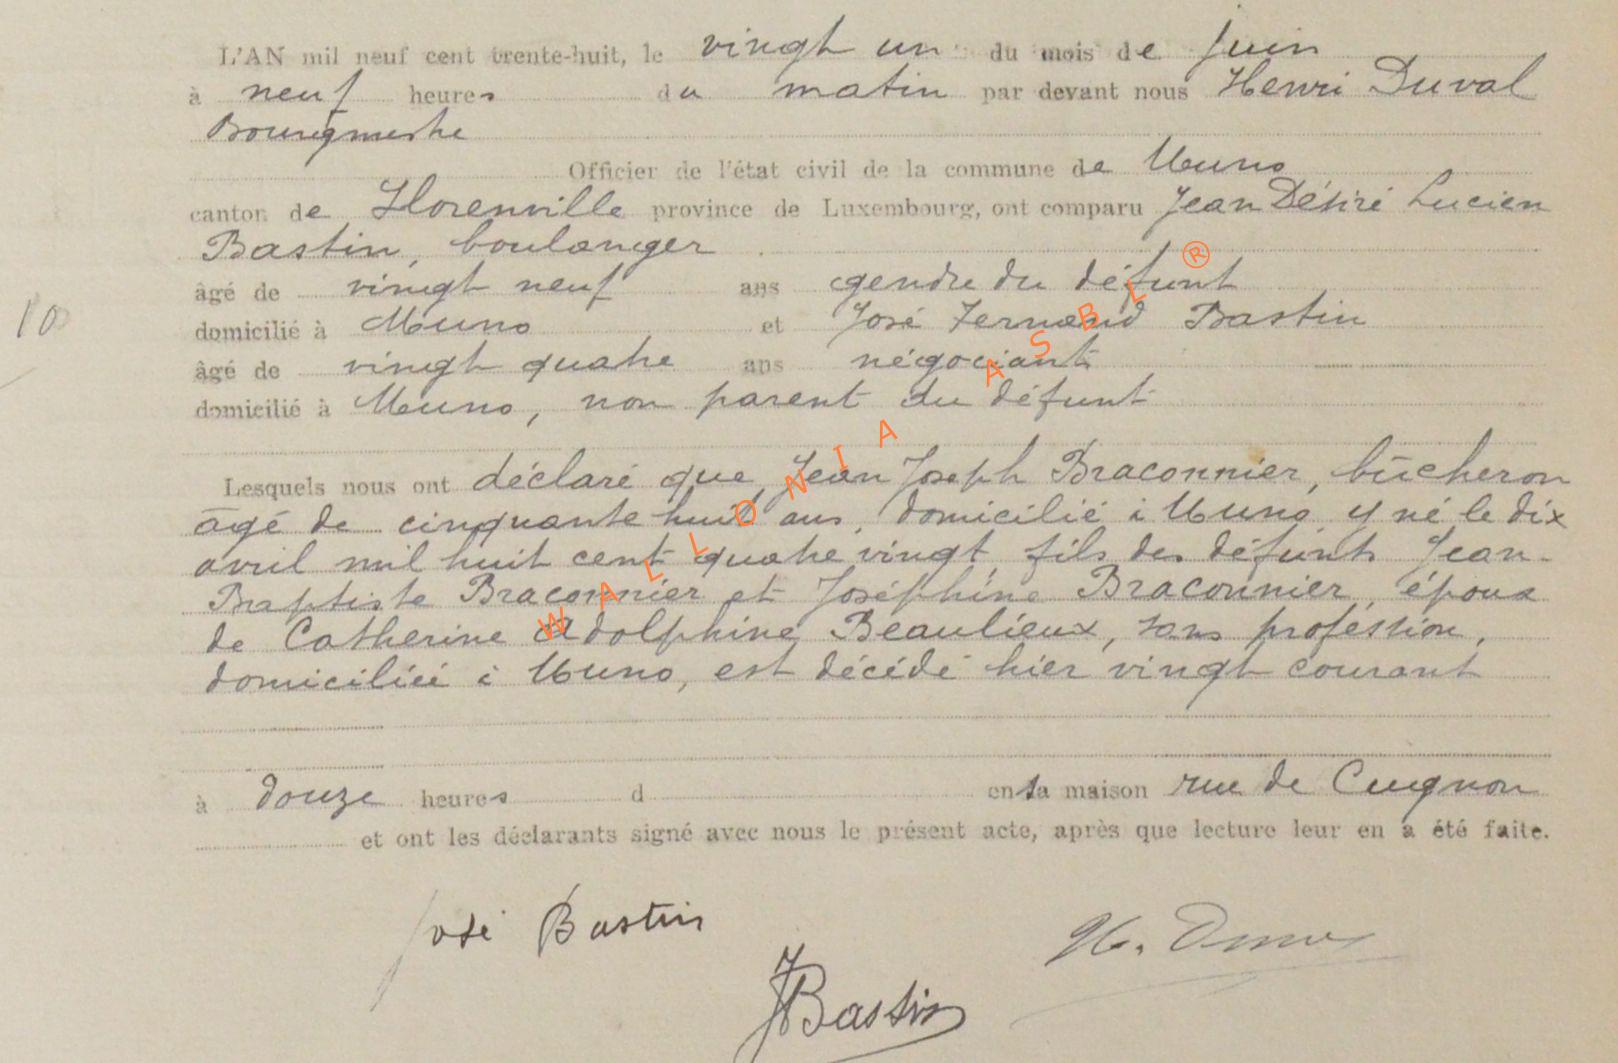 L'AN mil neuf cent trente-huit, le vingt un du mois de juin
à neuf heures du matin par devant nous Henri Duval
Bourgmestre
Officier de l'état civil de la commune de Muno
canton de Florenville province de Luxembourg, ont comparu Jean Désiré Lucien
Bastin, boulanger
âgé de vingt neuf ans gendre du défunt
10 domicilié à Muno et José Fernand Bastin
âgé de vingt quatre ans négociant
domicilié à Muno, non parent du défunt
Lesquels nous ont déclaré que Jean Joseph Braconnier, bûcheron
âgé de cinquante huit ans, domicilié à Muno, y né le dix
avril mil huit cent quatre vingt, fils des défunts Jean-
Baptiste Braconnier et Joséphine Braconnier, époux
de Catherine Adolphine Beaulieux, sans profession,
domiciliée à Muno, est décédé hier vingt courant
à douze heures d en sa maison rue de Cugnon
et ont les déclarants signé avec nous le présent acte, après que lecture leur en a été faite.
José Bastin
H. Duval
JBastin
WALLONIA ASBL ®